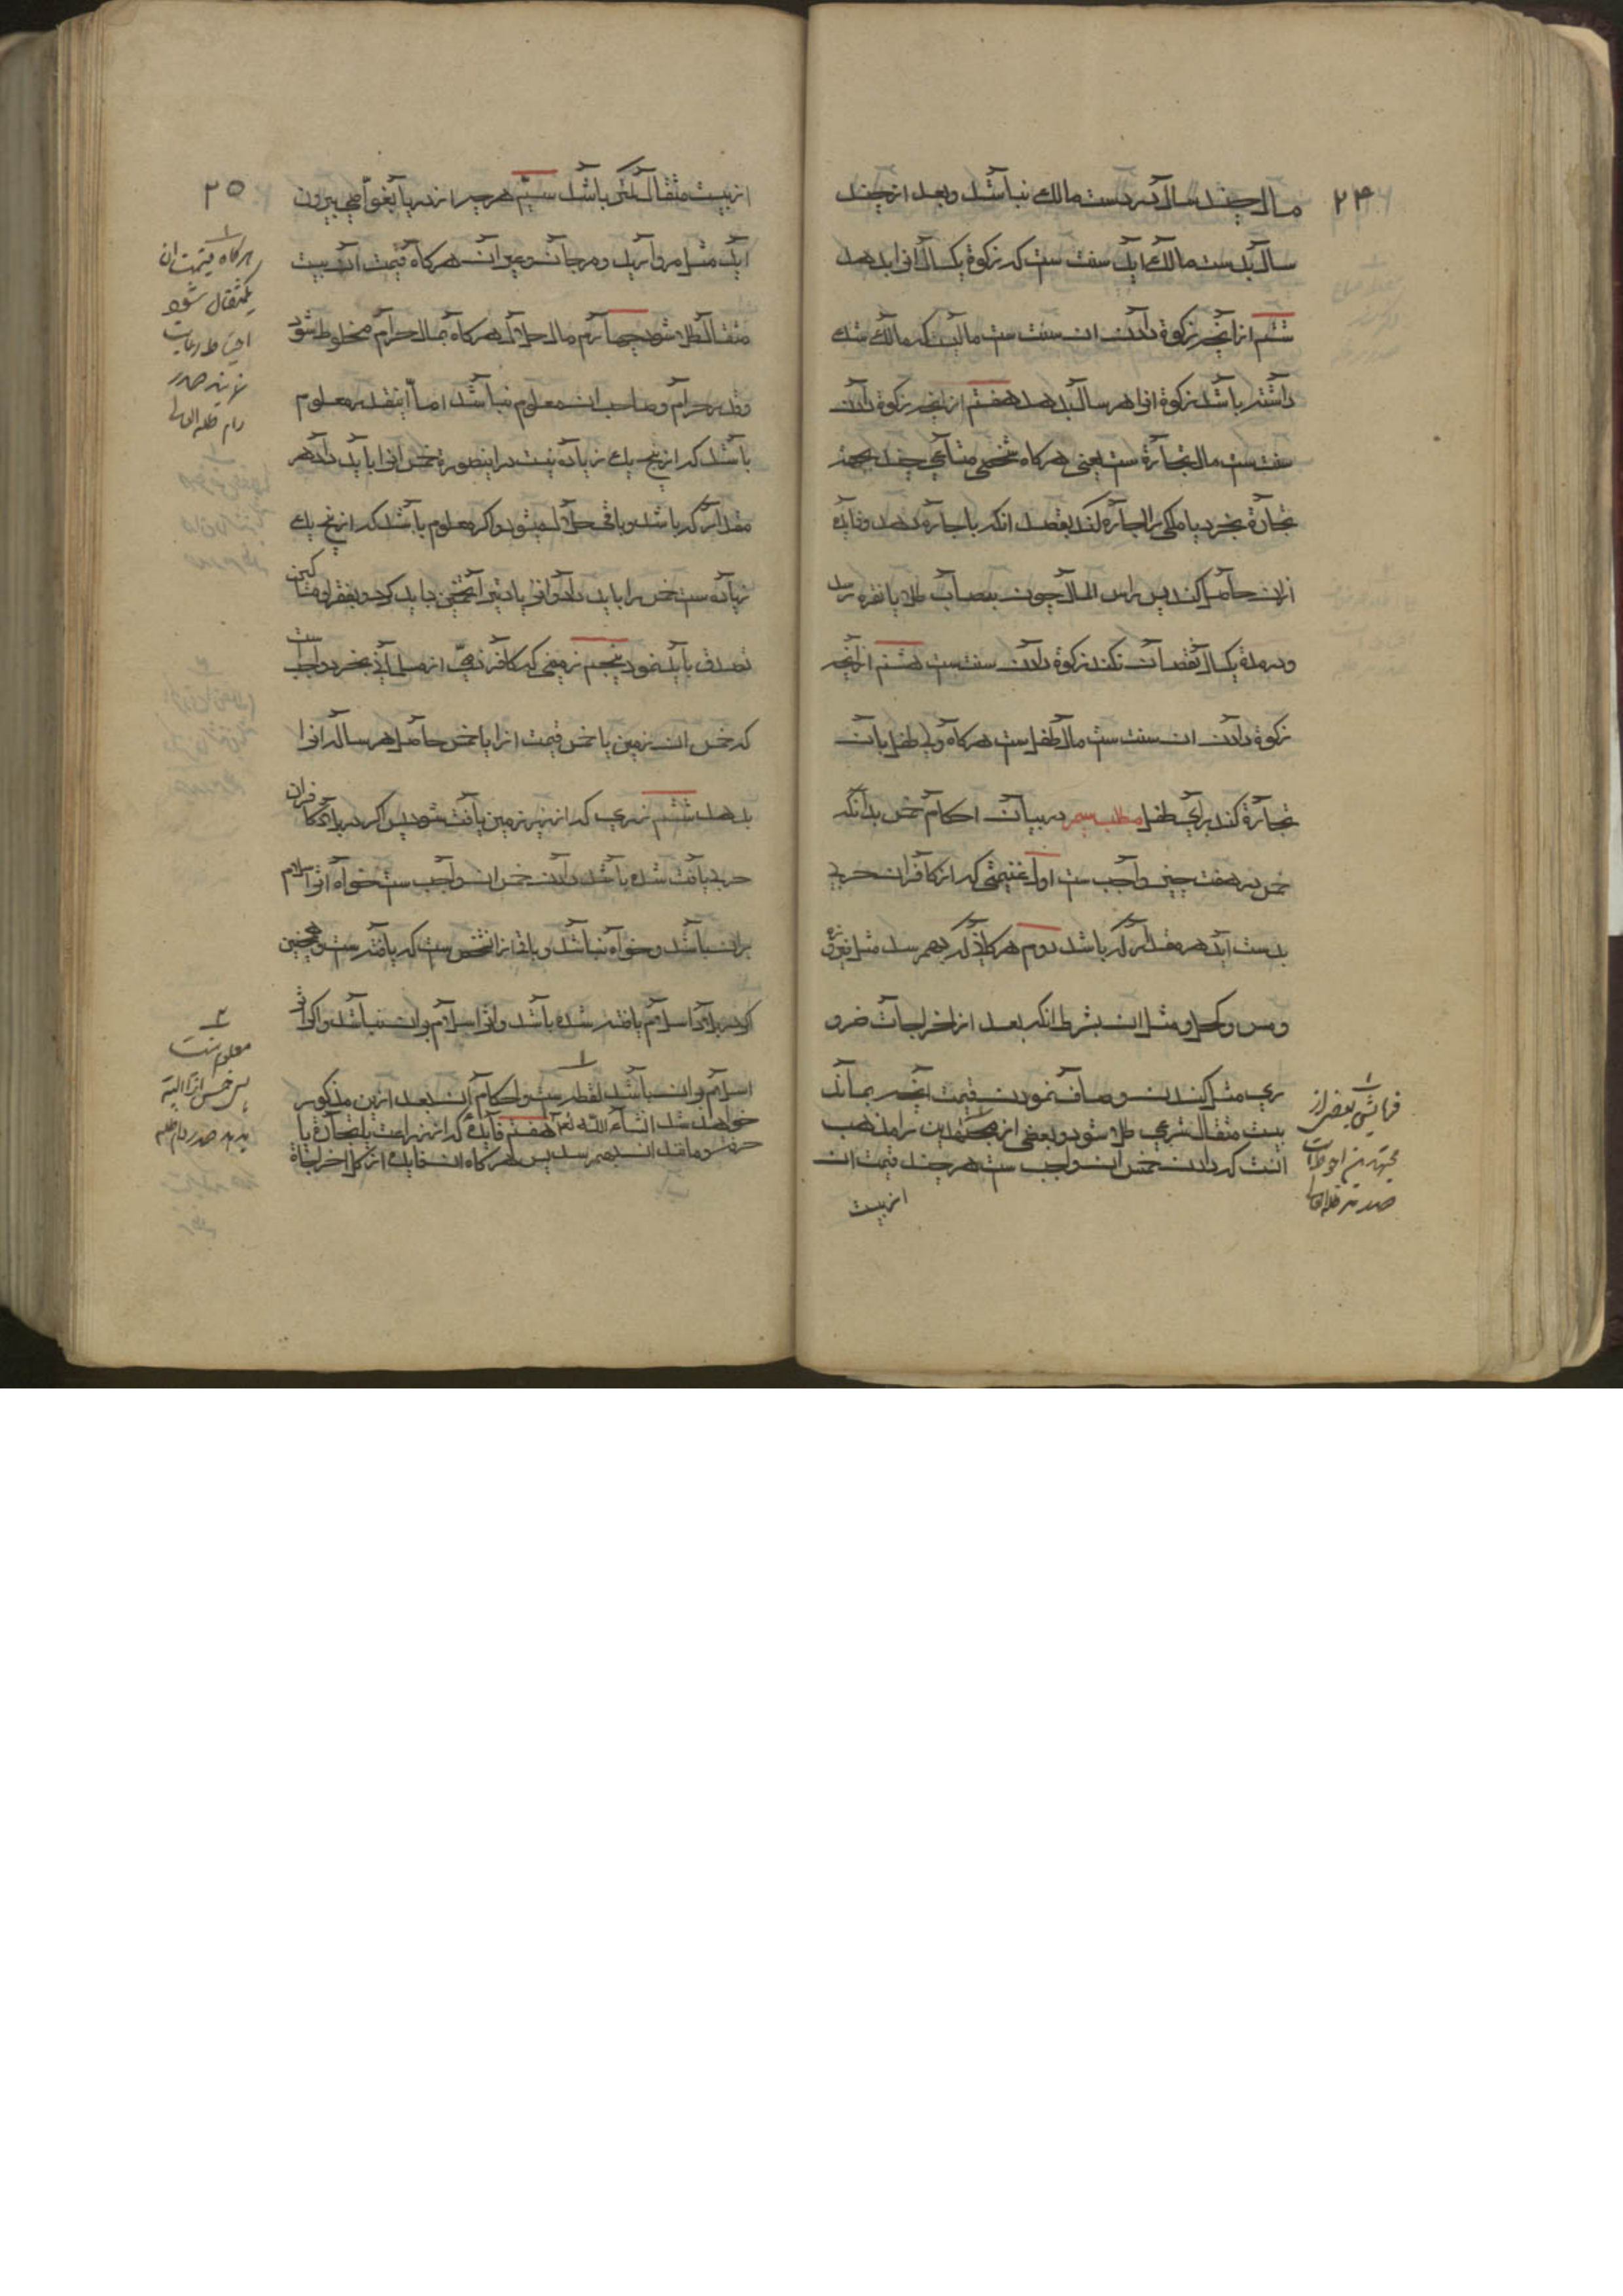 ۲۴
مال چند سال که در دست مالک نباشد و بعد از چند
سال بدست مالک اید سنت ست که زکوة یکسال انرا بدهد
ششم از انچه زکوة دادن ان سنت ست مالیست که مالک شک
داشته باشد زکوة انرا هر سال بدهد هفتم از انچه زکوة دادن
سنت ست مال تجارة ست یعنی هرکاه شخصی متاعی چند بجهة
تجارة بخرد یا ملکی را اجاره کند بقصد انکه باجاره بدهد و فایده
ازان حاصل کند پس راس المال چون بنصاب طلا یا نقره رسد
و در مدة یکسال نقصان نکند زکوة دادن سنت ست هشتم از انچه
زکوة دادن ان سنت ست مال طفل ست هرکاه ولی طفل بان
تجارة کند برای طفل مطلب سیم در بیان احکام خمس بدانکه
خمس در هفت چیز واجب ست اول غنیمتی که از کافران حربی
بدست اید هر مقدار که باشد دوم هر کانی که بهم رسد مثل فیروزه
و مس و کحل و مثل ان بشرط انکه بعد از اخراجات ضرو
ری مثل کندن و صاف نمودن قیمت انچه بماند
بیست مثقال شرعی طلا شود و بعضی از مجتهدین را مذهب
انست که دادن خمس ان واجب ست هر چند قیمت ان
از بیست
۱
فرمایش بعض از
مجتهدین احوط است
صدر مد ظله العالی
۲۵
از بیست مثقال کمتر باشد سیم هر چیز از دریا بغواصی بیرون
اید مثل مروارید و مرجان و غیر ان هرکاه قیمت ان بیست
مثقال طلا شود چهارم مال حلال هرکاه بمال حرام مخلوط شود
و قدر حرام و صاحب ان معلوم نباشد اما اینقدر معلوم
باشد که از پنج یک زیاده نیست در اینصورة خمس انرا باید داد هر
مقدار که باشد و باقی حلال میشود و اکر معلوم باشد که از پنج یک
زیاده ست خمس را باید داد و انرا یادتیرا تخمین باید کرد و بفقرا و مساکین
تصدق باید نمود پنجم زمینی که کافر ذمی از مسلمانی بخرد واجب ست
که خمس ان زمین یا خمس قیمت انرا یا خمس حاصل هر ساله انرا
بدهد ششم زری که از زیر زمین یافت شود پس اکر در بلاد کافران
حربی یافت شده باشد دادن خمس ان واجب ست خواه اثر اسلام
بران باشد و خواه نباشد و باقی از انشخص ست که یافته ست و همچنین
اکر در بلاد اسلام یافته شده باشد و اثر اسلام بران نباشد و اکر اثر
اسلام بران باشد لقطه ست و احکام ان بعد ازین مذکور
خواهد شد انشاء الله تع هفتم فایدۀ که از زراعت یا تجارة یا
حرفت و مانند ان بهم رسد پس هرکاه ان فایده از کل اخراجاة
۱
هرکاه قیمت ان
یکمثقال شود
احتیاط رعایت
نمایند صدر
دام ظله العالی
۲
معلوم نیست
پس خمس انرا البته
بدهد صدر دام ظله